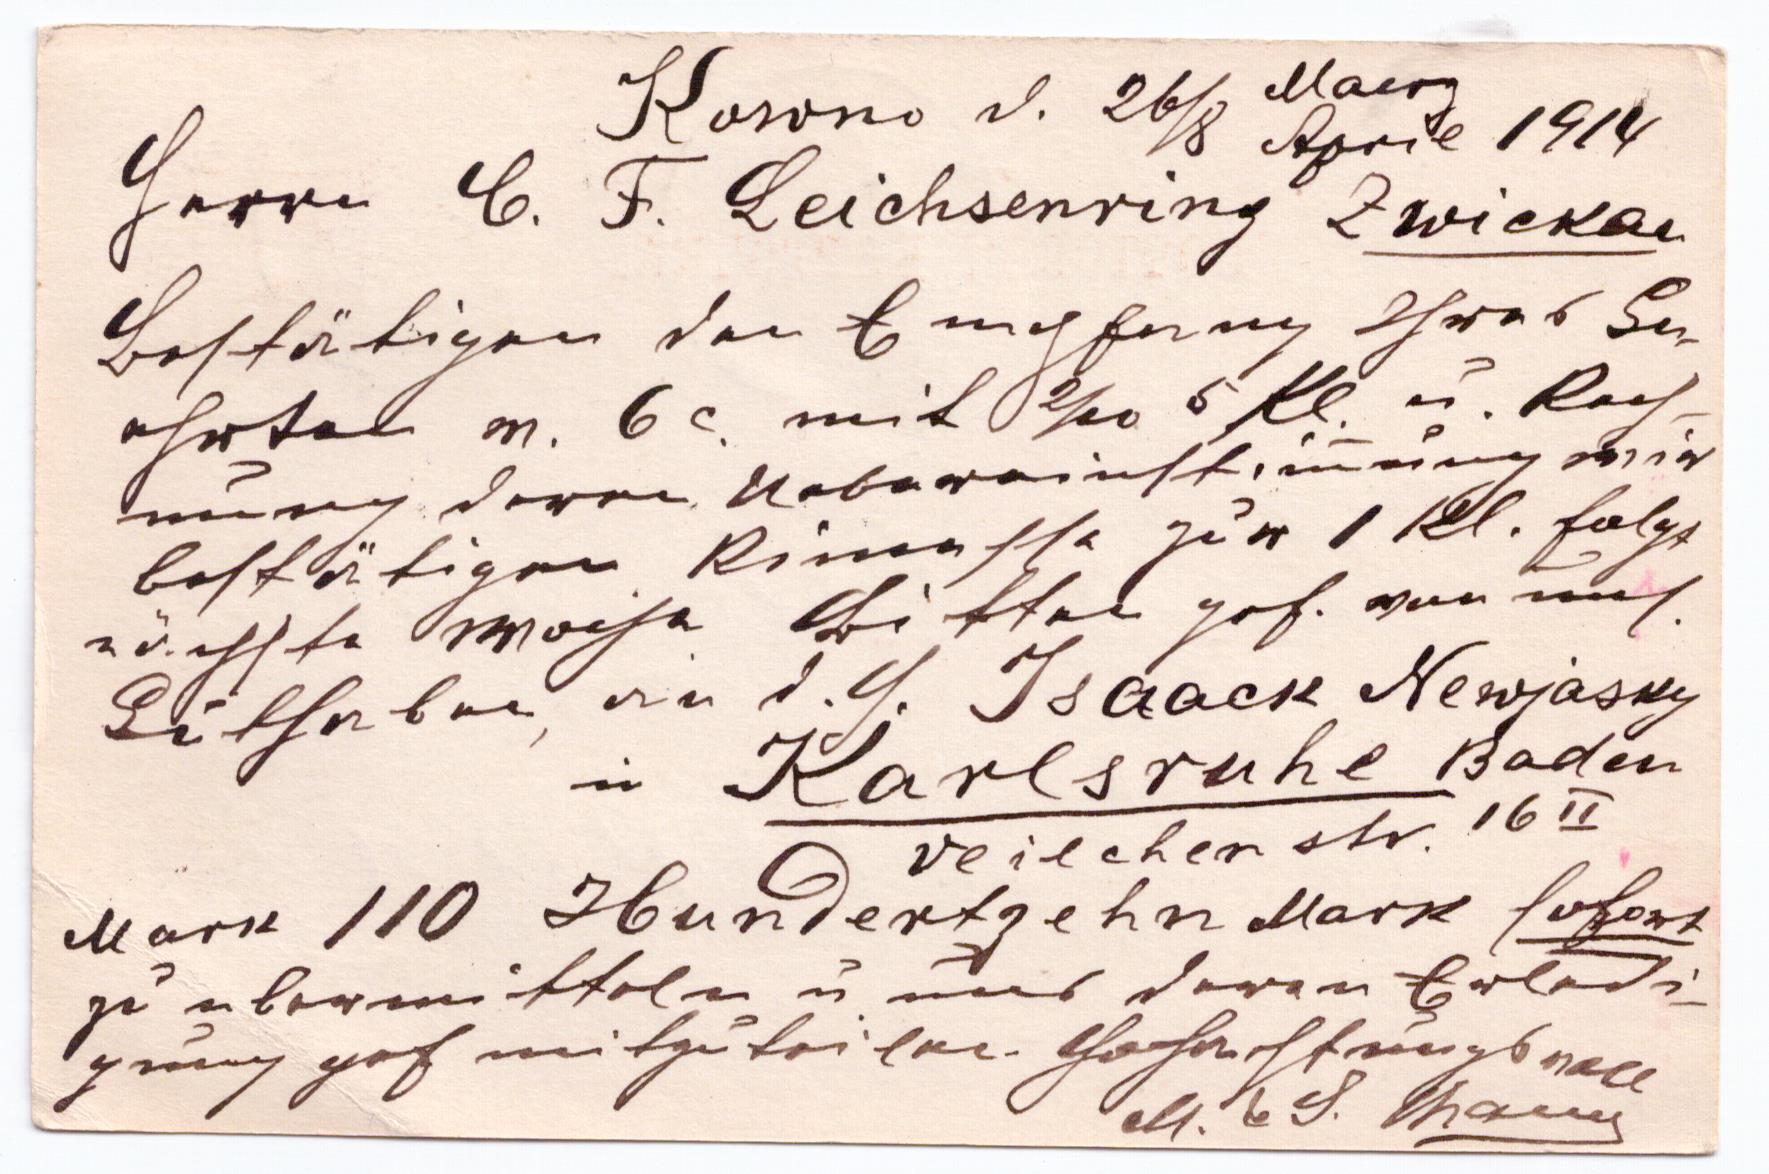 Kowno d. 26/8 Maerz April 1914
Herrn C. F. Leichsenring Zwickau
Bestätigen den Empfang Ihres Ge-
ehrten v. 6 c. mit 2/10 5 Kl. u. Rech-
nung deren Uebereinstimmung wir
bestätigen Rimesse zur 1 Kl. folgt
nächste Woche Bitten gef. von uns.
Guthaben, an d. H. Isaack Newjasky
in Karlsruhe Baden
Veilchenstr. 16 II
Mark 110 Hundertzehn Mark sofort
zu übermitteln u uns deren Erledi-
gung gef mitzuteilen. Hochachtungsvoll
M. & S.